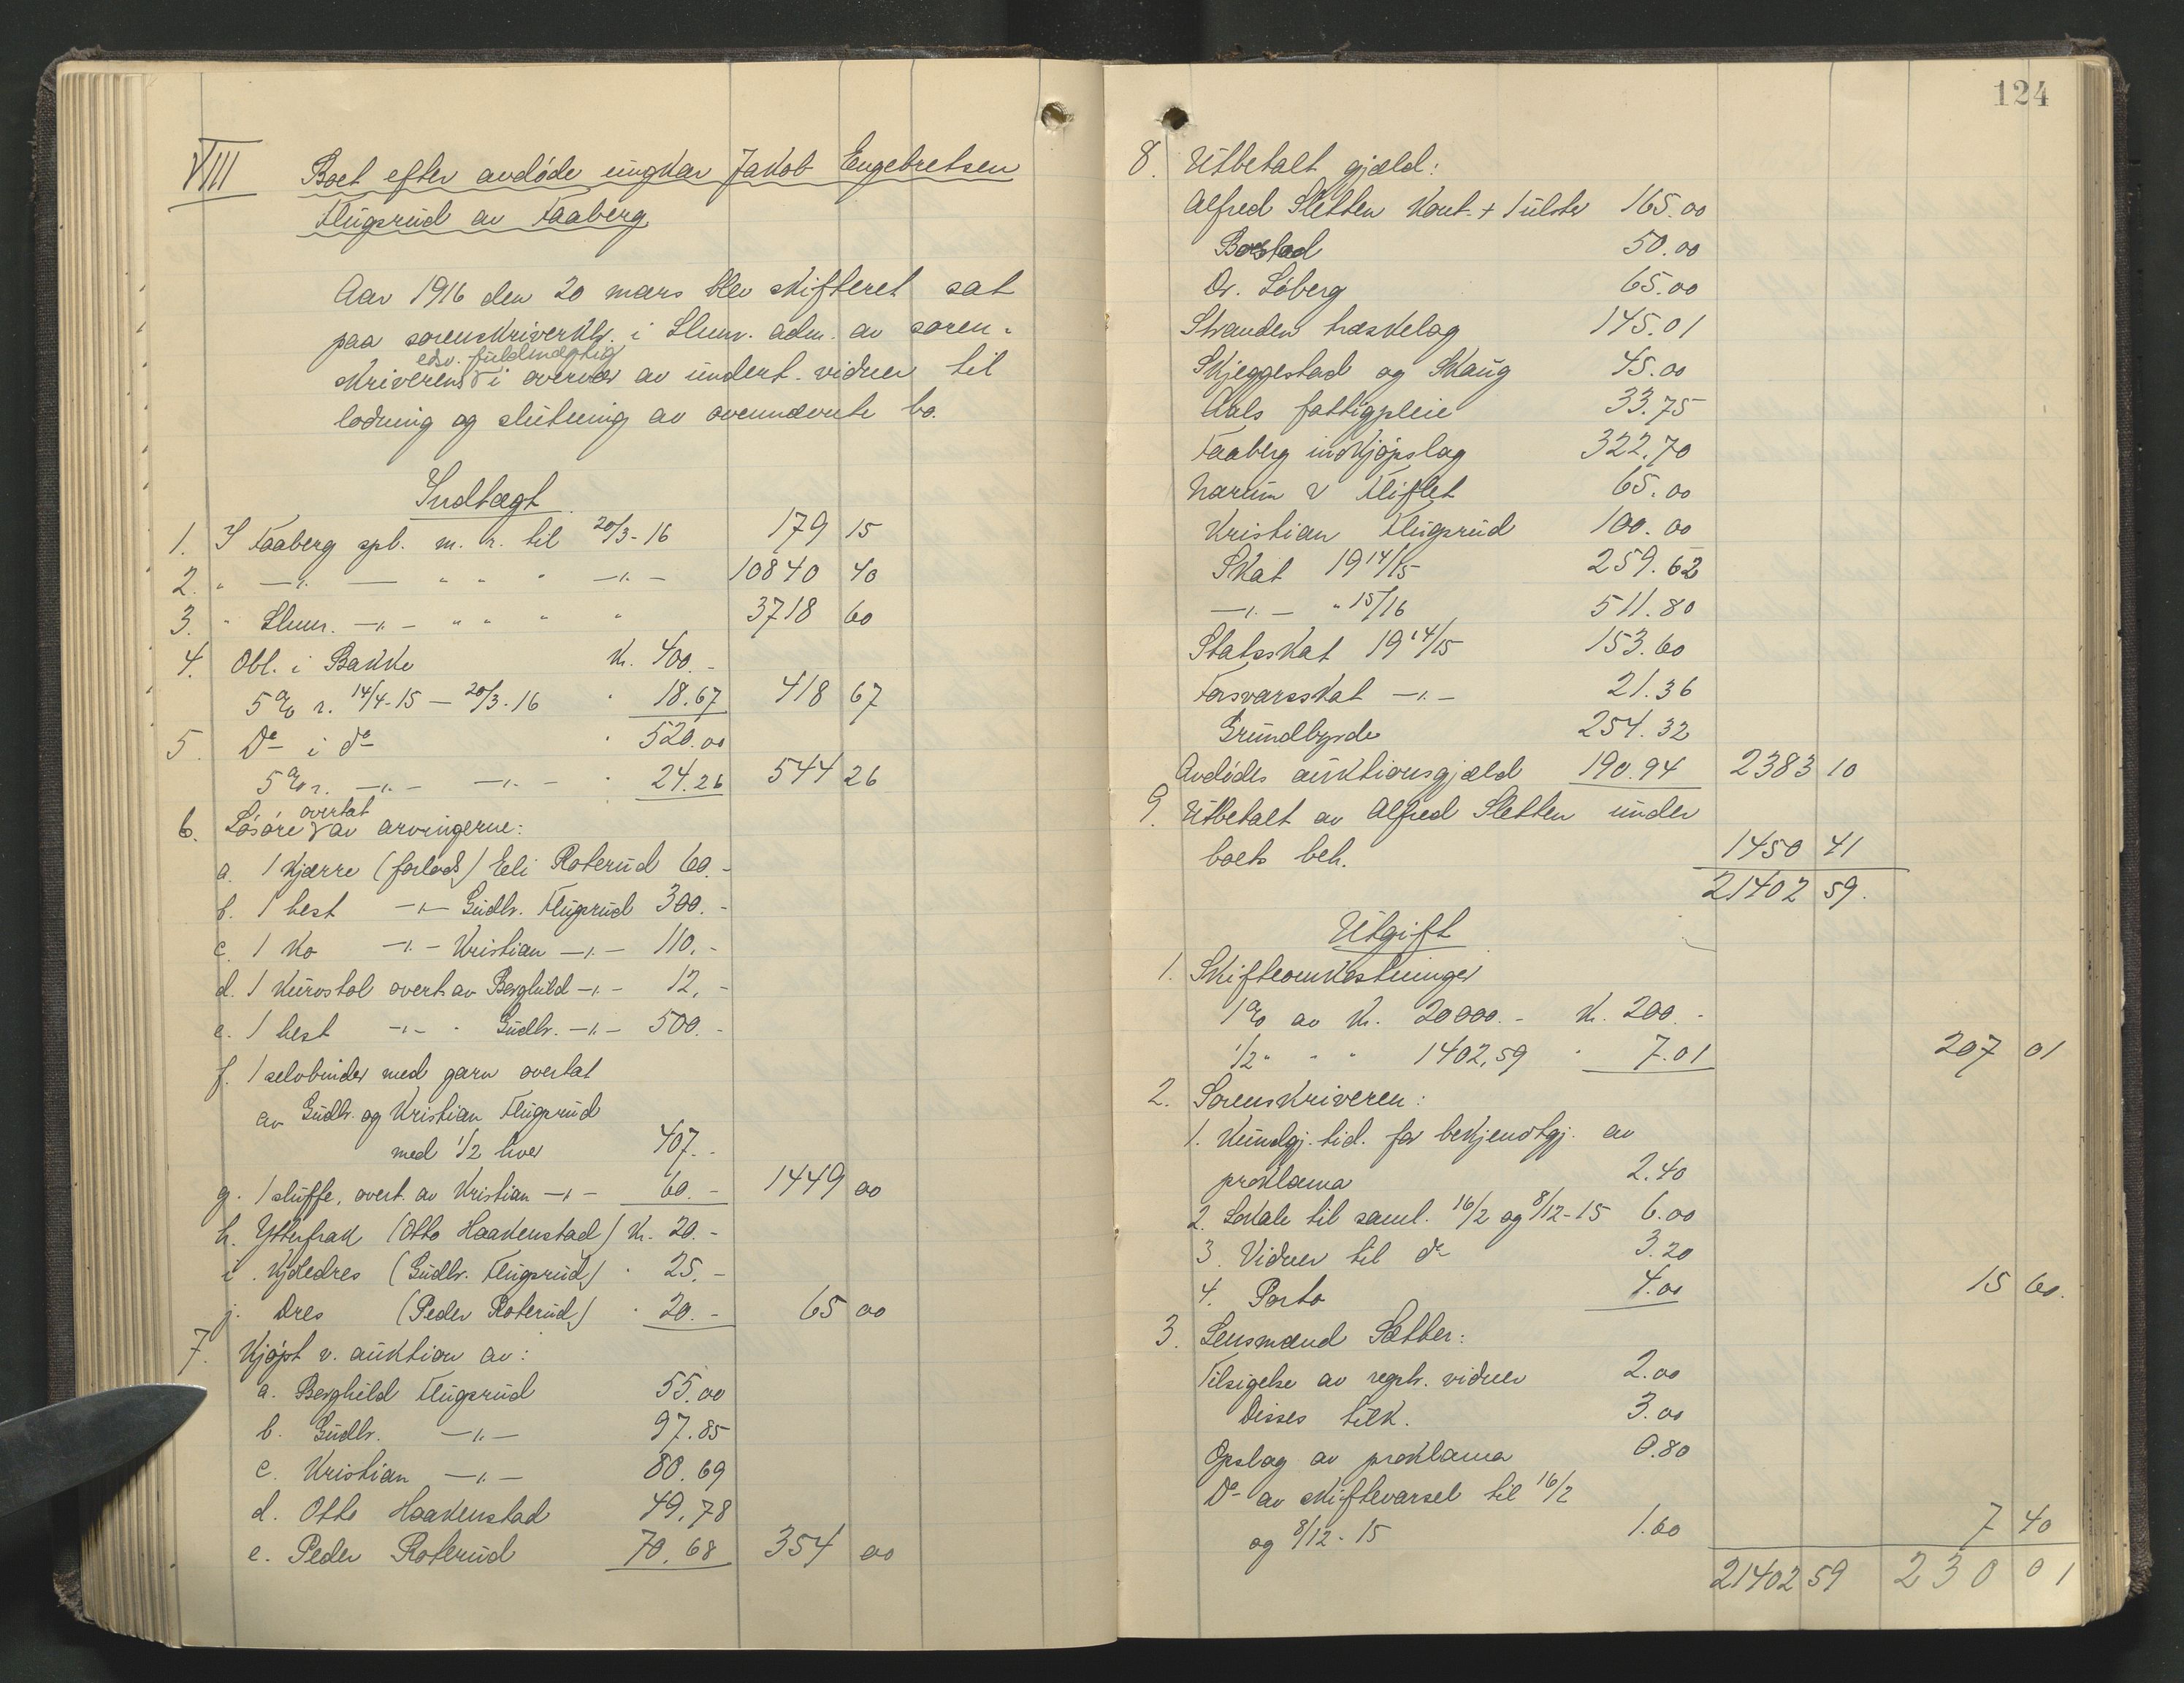 VIII Boet efter avdøde ungkar Jakob Engebretsen
Flugsrud av Faaberg
Aar 1916 den 20 mars blev skifteret sat
paa sorenskriverktr. i Llhmr. adm. av soren-
edsv. fuldmægtig
skriverens i overvær av undert. vidner til
lodning og slutning av ovennævnte bo.
Indtægt
1. I Faaberg spb. m. r. til 20/3-16 179 15
2. " —„— " " " —„— 10840 40
3. " Llhmr. —„— " " " " 3718 60
4. Obl. i Bakke Kr. 400.-
5% r. 14/4-15 — 20/3-16 " 18.67 418 67
5. Do i do " 520.00
5% r. —„— —„— " 24.26 544 26
overtat
6. Løsøre av arvingerne:
a. 1 kjærre (forlods) Eli Roterud 60.-
b. 1 hest —„— Gudbr. Flugsrud 300.-
c. 1 ko —„— Kristian —„— 110.-
d. 1 kurvstol overt. av Berghild —„— 12.-
e. 1 hest —„— " Gudbr. —„— 500.-
f. 1 selvbinder med garn overtat
av Gudbr. og Kristian Flugsrud
med 1/2 hver 407.-
g. 1 sluffe, overt. av Kristian —„— 60.- 1449 00
h. Ytterfrak (Otto Haakenstad) Kr. 20.-
i. Kjoledres (Gudbr. Flugsrud) " 25.-
j. Dres (Peder Roterud) " 20.- 65 00
7. Kjøpt v. auktion av:
a. Berghild Flugsrud 55.00
b. Gudbr. —„— 97.85
c. Kristian —„— 80.69
d. Otto Haakenstad 49.78
e. Peder Roterud 70.68 354 00
124
8. Utbetalt gjæld:
Alfred Sletten kont. + 1 ulster 165.00
Borstad 50.00
Dr. Løberg 65.00
Stranden træskelag 145.01
Skjeggestad og Skaug 45.00
Aals fattigpleie 33.75
Faaberg indkjøpslag 322.70
Narum v Fliflet 65.00
Kristian Flugsrud 100.00
Skat 1914/15 259.62
—„— " 15/16 511.80
Statsskat 1914/15 153.60
Forsvarsskat —„— 21.36
Grundbyrde 254.32
Avdødes auktionsgjæld 190.94 2383 10
9. Utbetalt av Alfred Sletten under
boets beh. 1450 41
21402 59.
Utgift
1. Skifteomkostninger
1% av kr. 20000.- kr. 200.-
1/2 " " " 1402,59 " 7.01 207 01
2. Sorenskriveren:
1. Kundgj. tid. for bekjendtgj. av
proklama 2.40
2. Lokale til saml. 16/2 og 8/12-15 6.00
3. Vidner til do 3.20
4. Porto 4.00 15 60.
3. Lensmand Sætter:
Tilsigelse av regstr. vidner 2.00
Disses tilk. 3.00
Opslag av proklama 0.80
Do av skiftevarsel til 16/2
og 8/12-15 1.60 7 40
21402 59 230 01